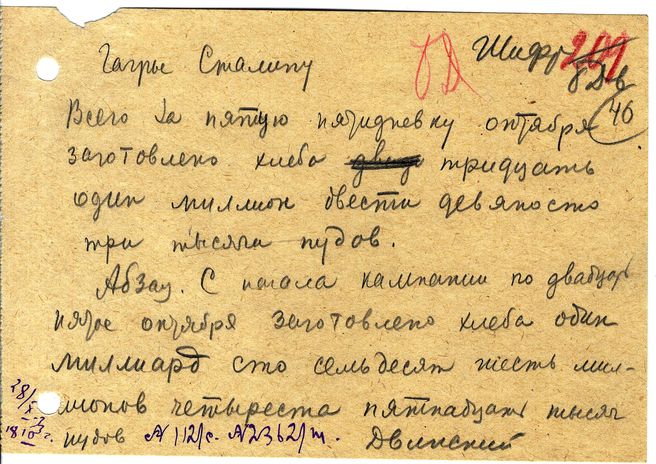 Шифр 209
Гагры Сталину
46
Всего за пятую пятидневку октября
заготовлено хлеба тридцать
один миллион двести девяносто
три тысячи пудов.
Абзац. С начала кампании по двадцат
пятое октября заготовлено хлеба один
миллиард сто семьдесят шесть мил-
лионов четыреста пятнадцать тысяч
пудов N 112/с. N2362/ш. Двинский
28/X
18 10